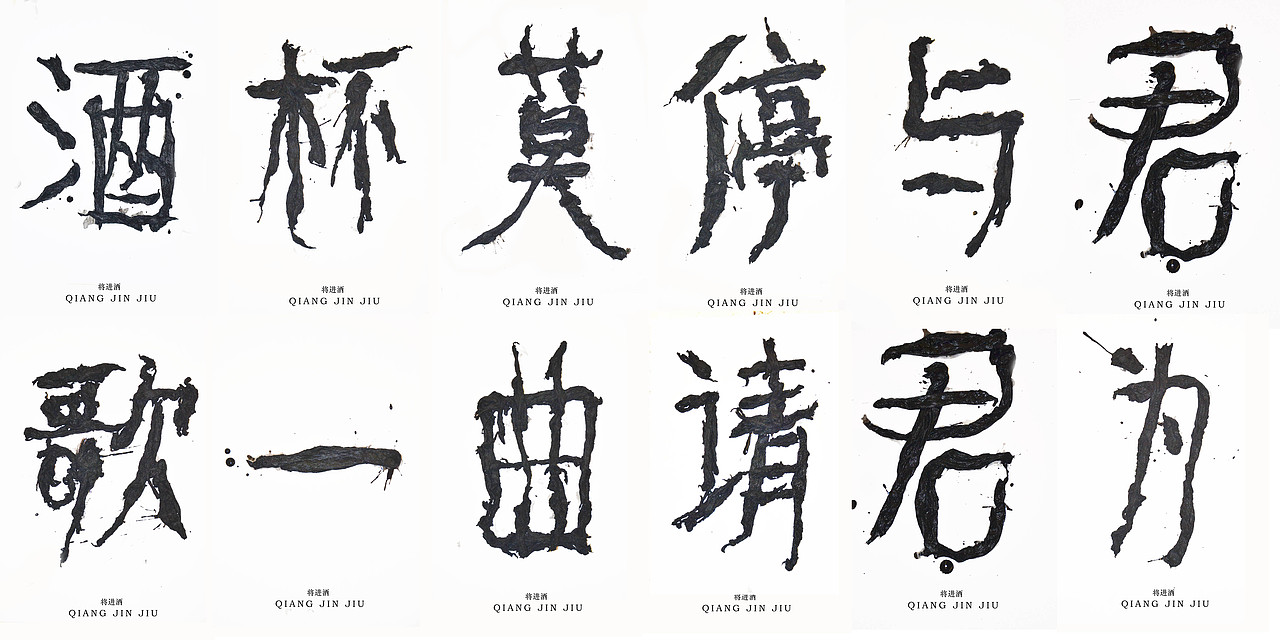 酒 杯 莫 停 与 君
将进酒 将进酒 将进酒 将进酒 将进酒 将进酒
QIANG JIN JIU QIANG JIN JIU QIANG JIN JIU QIANG JIN JIU QIANG JIN JIU QIANG JIN JIU
歌 一 曲 请 君 为
将进酒 将进酒 将进酒 将进酒 将进酒 将进酒
QIANG JIN JIU QIANG JIN JIU QIANG JIN JIU QIANG JIN JIU QIANG JIN JIU QIANG JIN JIU